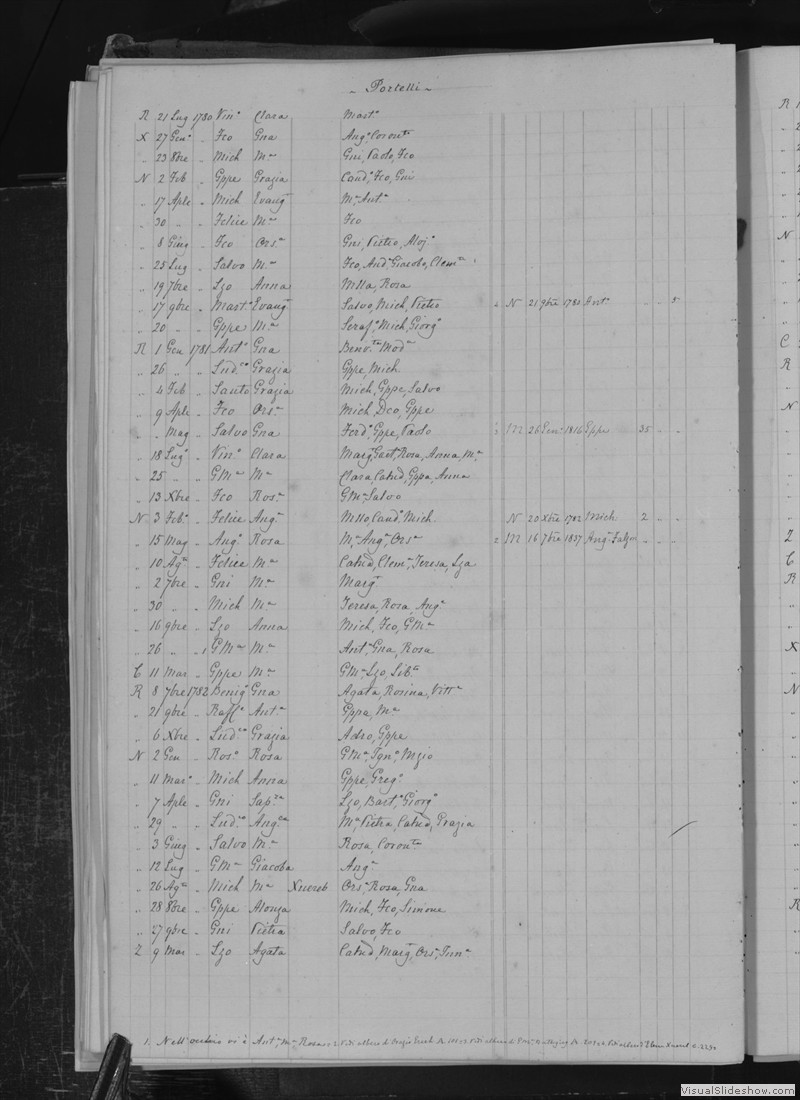 ~ Portelli ~
R 21 Lug 1780 Vinc. Clara Mast.
X 27 Gen. „ Fco Gna Ang. Coront.
„ 23 8bre „ Mich Ma. Gni, Paolo, Fco
N 2 Feb „ Gppe Grazia Cand. Fco, Gni
„ 17 Aple „ Mich Evang. Ma. Ant.
„ 30 „ „ Felice Ma. Fco
„ 8 Giug „ Fco Ors. Gni, Pietro, Aloj.
„ 25 Lug „ Salvo Ma. Fco, And. Giacobo, Clem.
„ 19 7bre „ Lzo Anna Mlla, Rosa
„ 17 9bre „ Mast. Evang. Salvo, Mich, Pietro 4 N 21 9bre 1781 Ant. „ „ 5
„ 20 „ „ Gppe Ma. Seraf. Mich, Giorg.
R 1 Gen 1781 Ant. Gna Benv. Mod.
„ 26 „ „ Lud. Grazia Gppe, Mich.
„ 4 Feb „ Santo Grazia Mich, Gppe, Salvo
„ 9 Aple „ Fco Ors. Mich, Dco, Gppe
„ „ Mag „ Salvo Gna Ferd. Gppe, Paolo 3 M 26 Gen. 1816 Gppe 35 „ „
„ 18 Lug „ Vin. Clara Marg. Gaet, Rosa, Anna, Ma.
„ 25 „ „ GMa Ma. Clara, Catud, Gppa, Anna
„ 13 Xbre „ Fco Ros. GMa Salvo
N 3 Feb. „ Felice Ang. Mllo, Cand. Mich. N 20 Xbre 1782 Mich 2 „ „
„ 15 Mag „ Ang. Rosa Ma. Ang. Ors. 2 M 16 7bre 1837 Ang. „ „ „
„ 10 Ag. „ Felice Ma. Catud, Clem. Teresa, Lza
„ 2 7bre „ Gni Ma. Marg.
„ 30 „ „ Mich Ma. Teresa, Rosa, Ang.
„ 16 9bre „ Lzo Anna Mich, Fco, GMa
„ 26 „ „ GMa Ma. Ant. Gna, Rosa
C 11 Mar „ Gppe Ma. GMa Lzo, Lib.
R 8 7bre 1782 Benig. Gna Agata, Rosina, Vitt.
„ 21 9bre „ Raff. Ant. Gppa, Ma.
„ 6 Xbre „ Lud. Grazia Adeo, Gppe
N 2 Gen „ Ros. Rosa GMa, Ign. Mzio
„ 11 Mar. „ Mich Anna Gppe, Greg.
„ 7 Aple „ Gni Sap. Lzo, Bart. Giorg.
„ 29 „ „ Lud. Ang. Ma. Pietra, Catud, Grazia
„ 3 Giug „ Salvo Ma. Rosa, Coront.
„ 12 Lug „ GMa Giacoba Ang.
„ 26 Ag. „ Mich Ma. Xuereb Ors. Rosa, Gna
„ 28 8bre „ Gppe Alonza Mich, Fco, Simone
„ 27 9bre „ Gni Pietra Salvo, Fco
Z 9 Mar „ Lzo Agata Catud, Marg. Ors.
1. Nell' vi è Ant. Ma. Rosa
VisualSlideshow.com